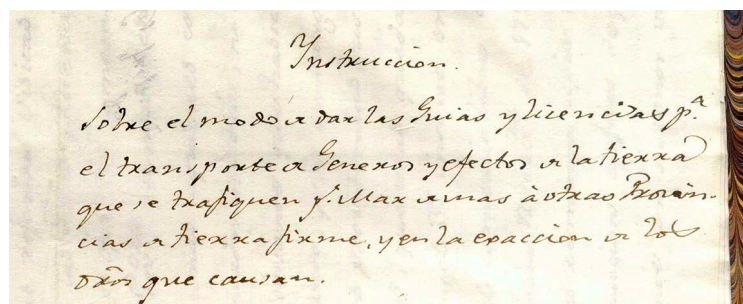 Instruccion.
Sobre el modo a dar las Guias y licencias p.ª
el transporte a Generos y efectos a la tierra
que se trafiquen p.r Mar a mas à otras Provin-
cias a tierra firme, y en la exaccion a los
dros que causan.